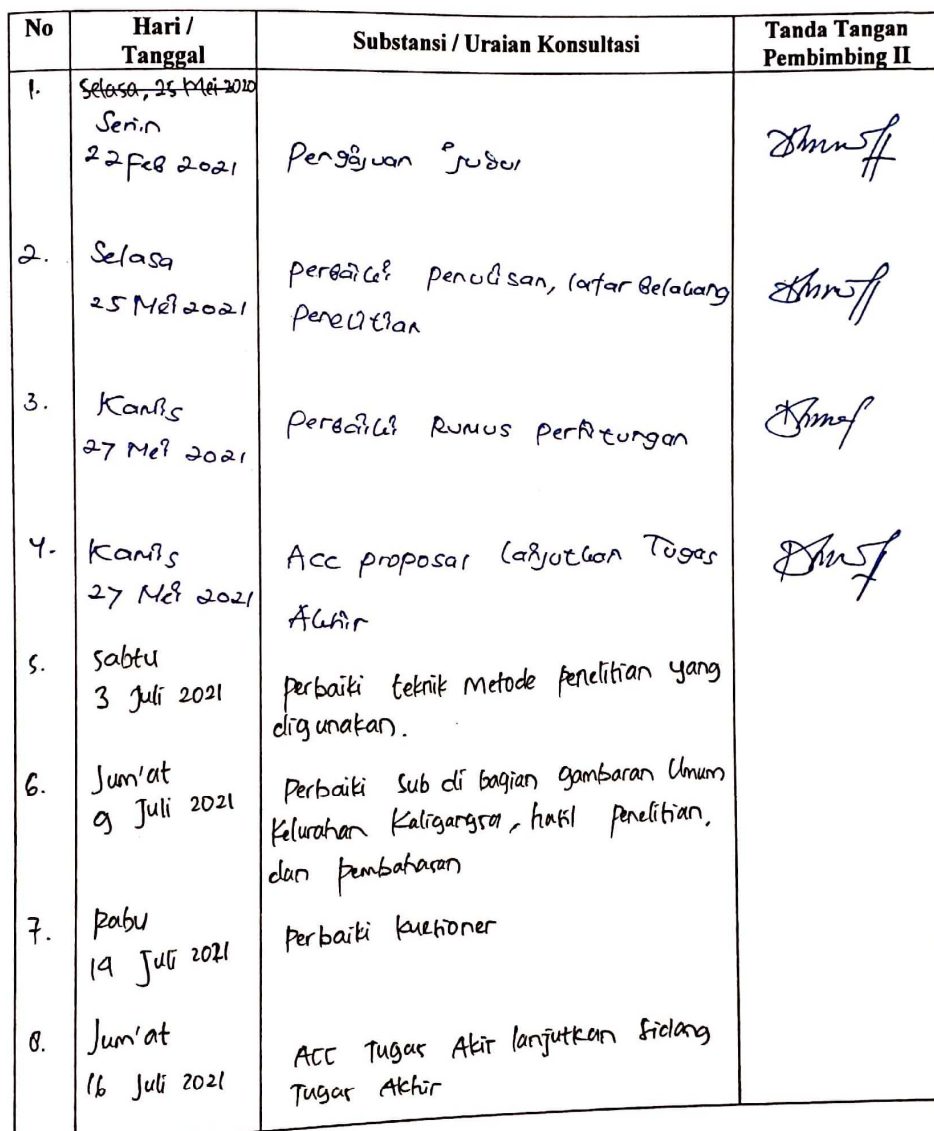 No
Hari /
Tanggal
Substansi / Uraian Konsultasi
Tanda Tangan
Pembimbing II
1.
Selasa, 25 Mei 2020
Senin
22 Feb 2021
Pengajuan judul
2.
Selasa
25 Mei 2021
Perbaiki penulisan, latar belakang
Penelitian
3.
Kamis
27 Mei 2021
Perbaiki Rumus perhitungan
4.
Kamis
27 Mei 2021
Acc proposal lanjutkan Tugas
Akhir
5.
Sabtu
3 Juli 2021
Perbaiki teknik metode penelitian yang
digunakan.
6.
Jum'at
9 Juli 2021
Perbaiki Sub di bagian gambaran Umum
Kelurahan Kaligangsa, hasil penelitian,
dan pembahasan
7.
Rabu
14 Juli 2021
Perbaiki kuesioner
8.
Jum'at
16 Juli 2021
ACC Tugas Akir lanjutkan Sidang
Tugas Akhir